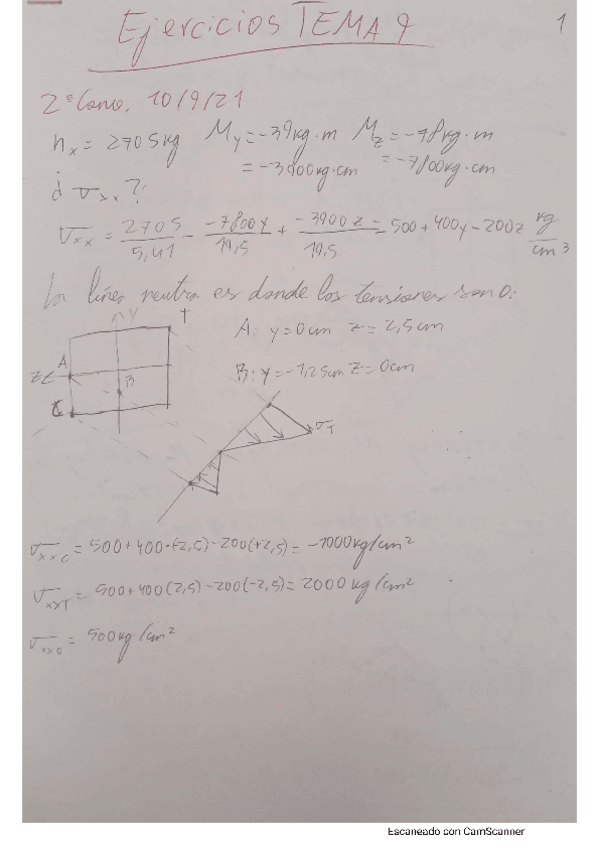 Ejercicios TEMA 9
1
2ª Conv. 10/9/21
Nx = 2705 kg My = -39 kg·m Mz = -78 kg·m
= -3900 kg·cm = -7800 kg·cm
¿ σxx ?
σxx = 2705/5,41 - -7800y/19,5 + -3900z/19,5 = 500 + 400y - 200z kg/cm³
La línea neutra es donde las tensiones son 0:
y T
A: y = 0cm z = 2,5cm
A
z
B
B: y = -1,25cm z = 0cm
C
σT
σxxC = 500 + 400·(-2,5) - 200(+2,5) = -1000 kg/cm²
σxxT = 500 + 400(2,5) - 200(-2,5) = 2000 kg/cm²
σxx0 = 500 kg/cm²
Escaneado con CamScanner